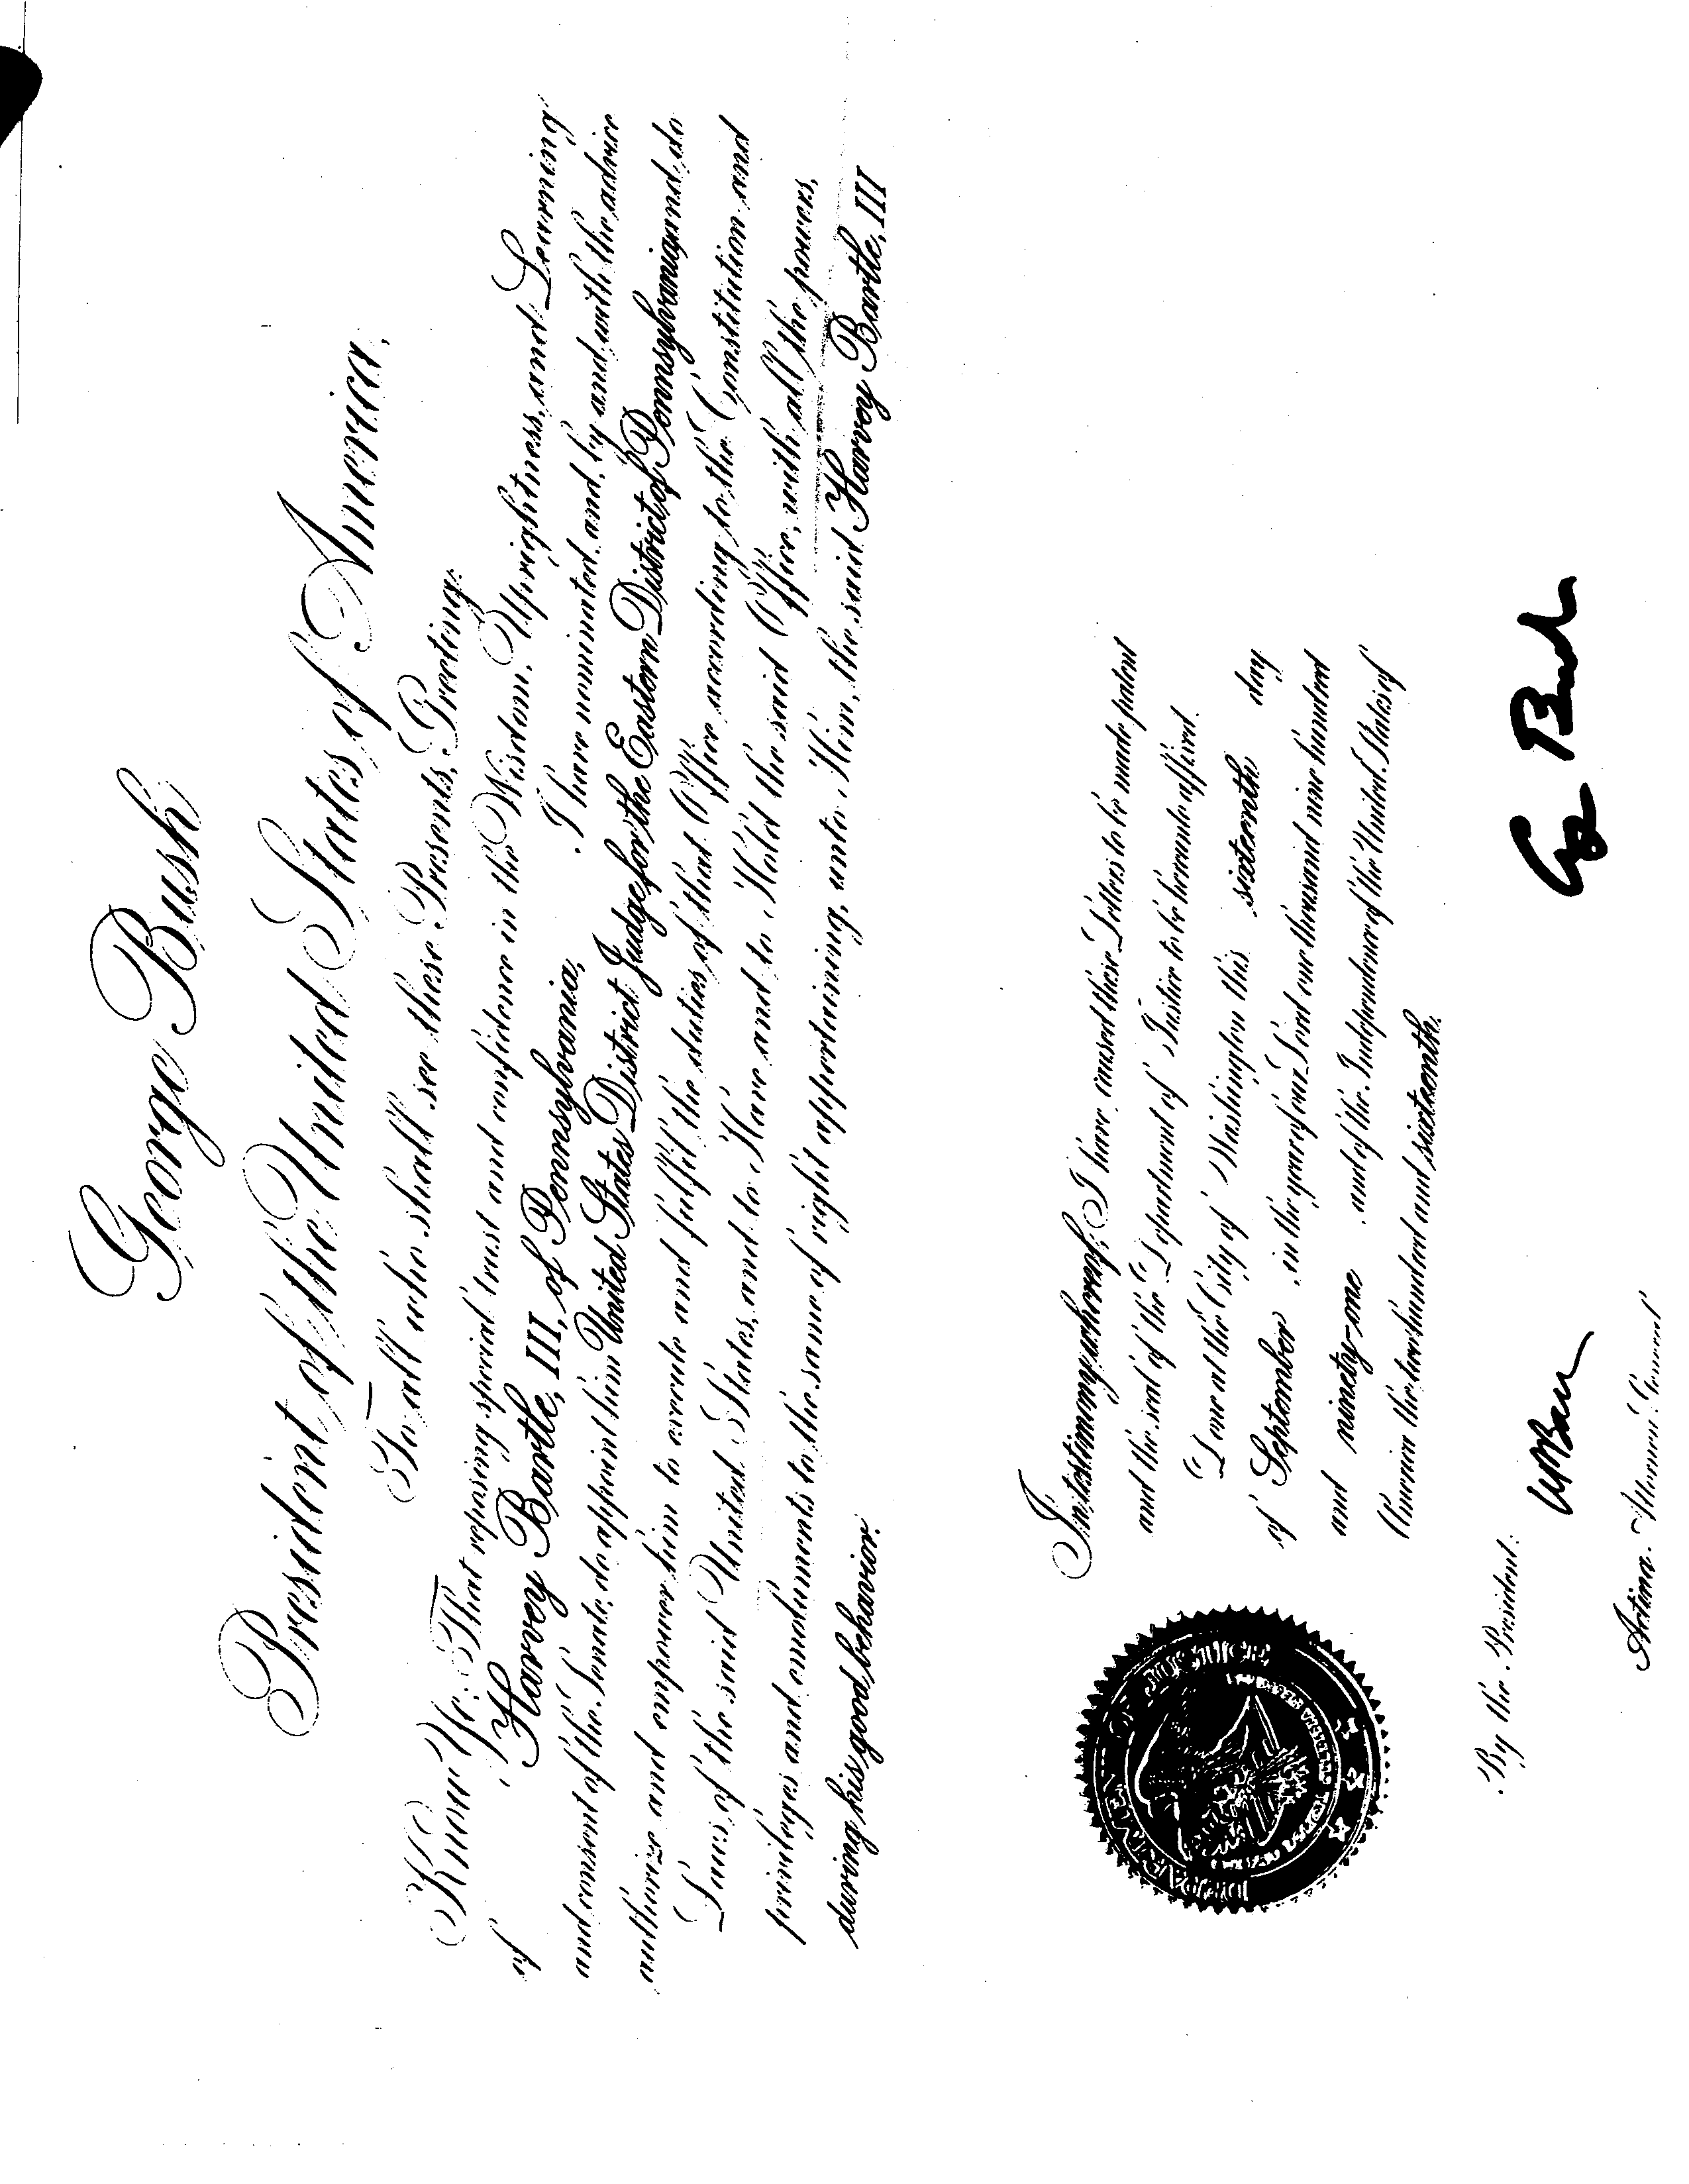 George Bush
President of the United States of America,
To all who shall see these Presents, Greeting:
Know Ye: That reposing special trust and confidence in the Wisdom, Uprightness, and Learning
of Harvey Bartle, III, of Pennsylvania, I have nominated, and, by and with the advice
and consent of the Senate, do appoint him United States District Judge for the Eastern District of Pennsylvania and do
authorize and empower him to execute and fulfil the duties of that Office according to the Constitution and
Laws of the said United States, and to Have and to Hold the said Office, with all the powers,
privileges and emoluments to the same of right appertaining, unto Him, the said Harvey Bartle, III
during his good behavior.
In testimony whereof, I have caused these Letters to be made patent
and the seal of the Department of Justice to be hereunto affixed.
Done at the City of Washington this sixteenth day
of September in the year of our Lord one thousand nine hundred
and ninety-one and of the Independence of the United States of
America the two hundred and sixteenth.
G Bush
By the President:
WPBarr
Acting Attorney General
DEPARTMENT OF JUSTICE